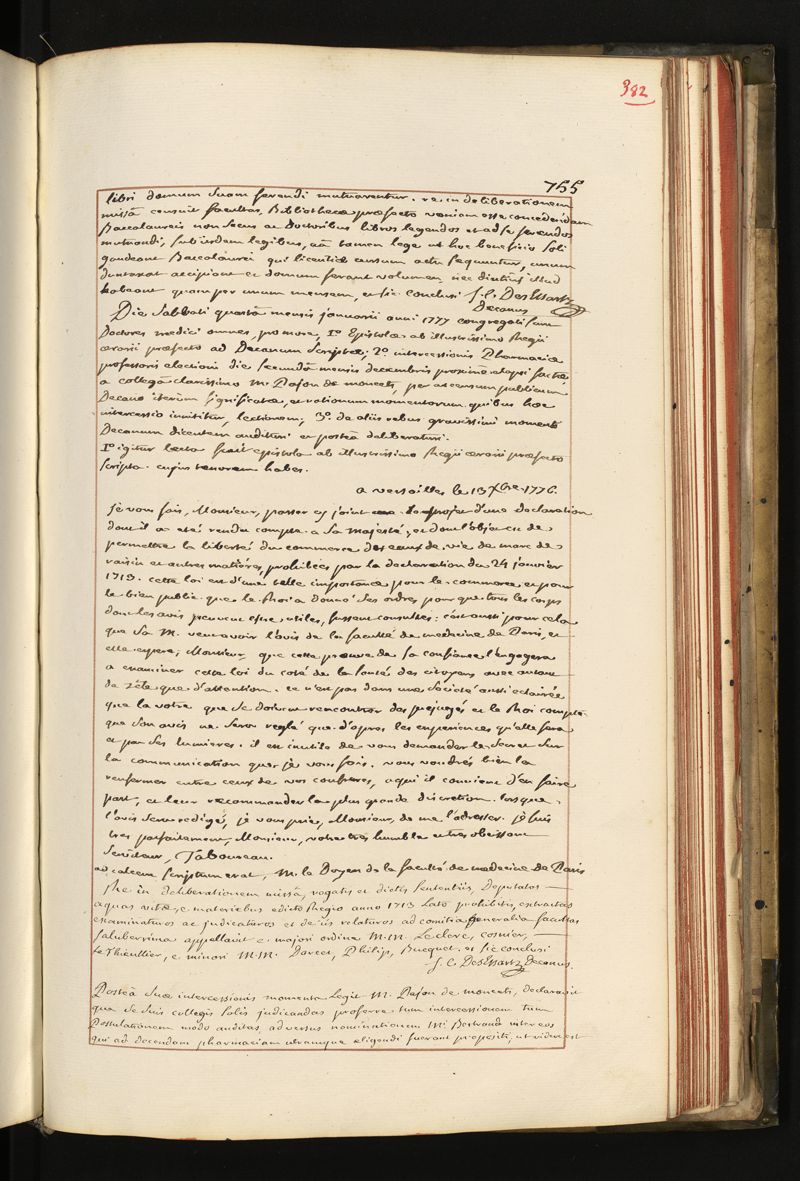 382
755
libri domum suam ferendi mutuarentur. re in deliberationem
missâ censuit facultas, Bibliothecæ præfecto veniam esse concedendam
Baccalaureis non secus ac Doctoribus libros legendos et ad se ferendos
mutuandi, sub iisdem legibus, eâ tamen lege ut hoc beneficio soli
gaudeant Baccalaurei qui licentiæ cursum actu sequuntur, unum
duntaxat accipiant et domum ferant volumen, nec diutius illud
habeant quam per unum mensem, et sic conclusi J. C. Des Essartz
Decanus
Die Sabbati quartâ mensis januarii anni 1777 congregati sunt
Doctores medici omnes, pro more, 1.° Epistolæ ab illustrissimo Regii
ærarii præfecto ad Decanum scriptæ; 2.° intercessionis Pharmaciæ
professoris electioni die secundâ mensis decembris proximè elapsi factæ
a collegâ clarissimo M. Pajon de moncets, per accensum publicum
Decano iterum significatæ, et rationum momentorum quibus hæc
intercessio innititur, lectionem; 3.° de aliis rebus gravissimi momenti
Decanum dicentem audituri et posteà deliberaturi.
1.° igitur lecta fuit epistola ab illustrissimo Regii ærarii præfecto
scripta. cujus tenorem habes.
a versailles le 13 Xbre 1776.
je vous fais, Monsieur, passer cy joint le projet d'une declaration
dont il a eté rendu compte a Sa Majesté, et dont l'objet est de
permettre la liberté du commerce des eaux de vie de marc de
raisin et autres matiéres, prohibées par la declaration du 24 janvier
1713. cette loi est d'une telle importance pour le commerce et pour
le bien public que le Roi a donné des ordres pour que tous les corps
dont les avis peuvent estre utiles, fussent consultés: c'est aussi pour cela
que Sa M. veut avoir l'avis de la faculté de medecine de Paris, et
elle espere, Monsieur, que cette preuve de sa confiance l'engagera
a examiner cette loi du costé de la santé des citoyens avec autant
de zèle que d'attention. ce n'est pas dans une Societé aussi eclairée
que la votre que se doivent rencontrer des prejugés et le Roi compte
que son avis ne sera reglé que d'apres les experiences qu'elle fera
et par ses lumieres. il est inutile de vous demander le secret sur
la communication que je vous fais. vous voudrés bien la
renfermer entre ceux de vos confreres, a qui il convient d'en faire
part, et leur recommander la plus grande discretion. lorsque
l'avis sera redigé, je vous prie, Monsieur, de me l'adresser. je suis
tres parfaitement, Monsieur, votre tres humble et tres obeissant
Serviteur, Taboureau.
ad calcem scriptum erat, M. le Doyen de la faculté de medecine de Paris
Re in deliberationem missâ, rogatis et dictis sententiis, Deputatos
aquas vitæ, e materiebus edicto Regio anno 1713 lato prohibitis, extractas
examinaturos ac judicaturos et de iis relaturos ad comitia generalia facultas
saluberrima appellavit e majori ordine M.M. Le clerc, cosnier,
Le Thieullier, e minori M.M. Darcet, Philip, Bucquet. et sic conclusi
J. C. Des Essartz Decanus.
Posteà suæ intercessionis momenta legit M. Pajon de moncets, declaravit
que se suis collegis solis judicandas proferre tum intercessionem tum
Postulationem modo auditas, adversus nominationem Mi. Bertrand inter eos
qui ad docendam pharmaciam utramque eligendi fuerant propositi, ut videre est